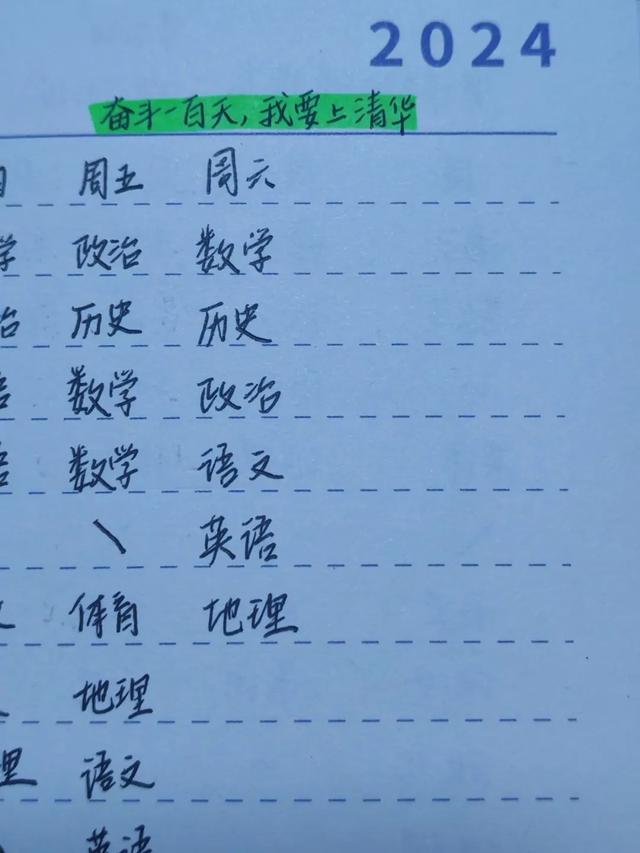 2024
奋斗一百天,我要上清华
周五 周六
学 政治 数学
治 历史 历史
语 数学 政治
语 数学 语文
\ 英语
体育 地理
地理
理 语文
英语